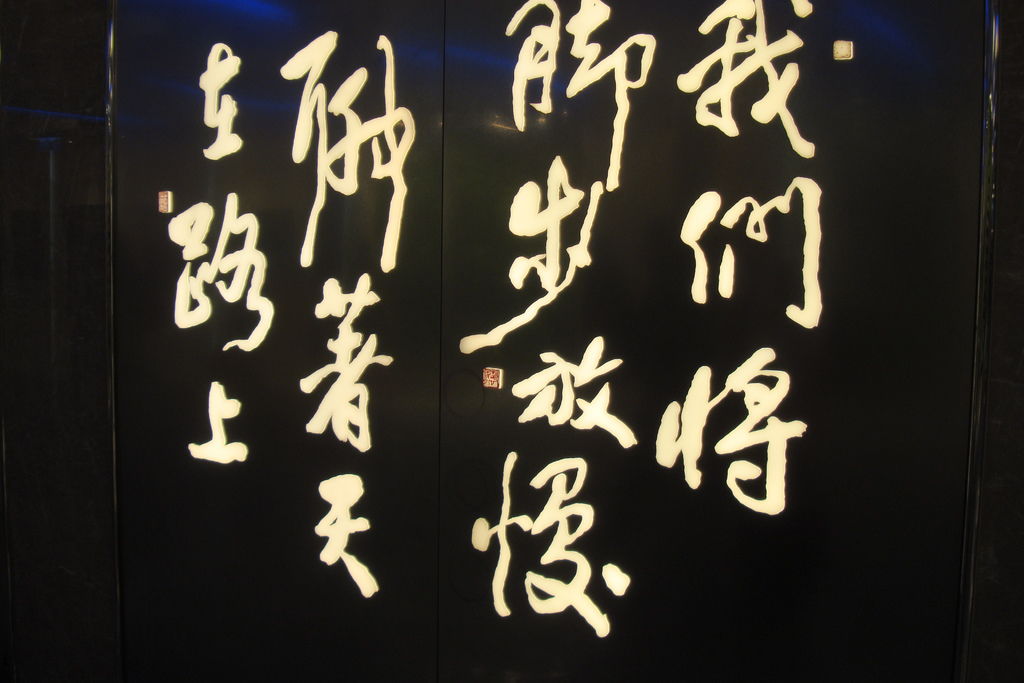 我們將
腳步放慢
聊著天
在路上